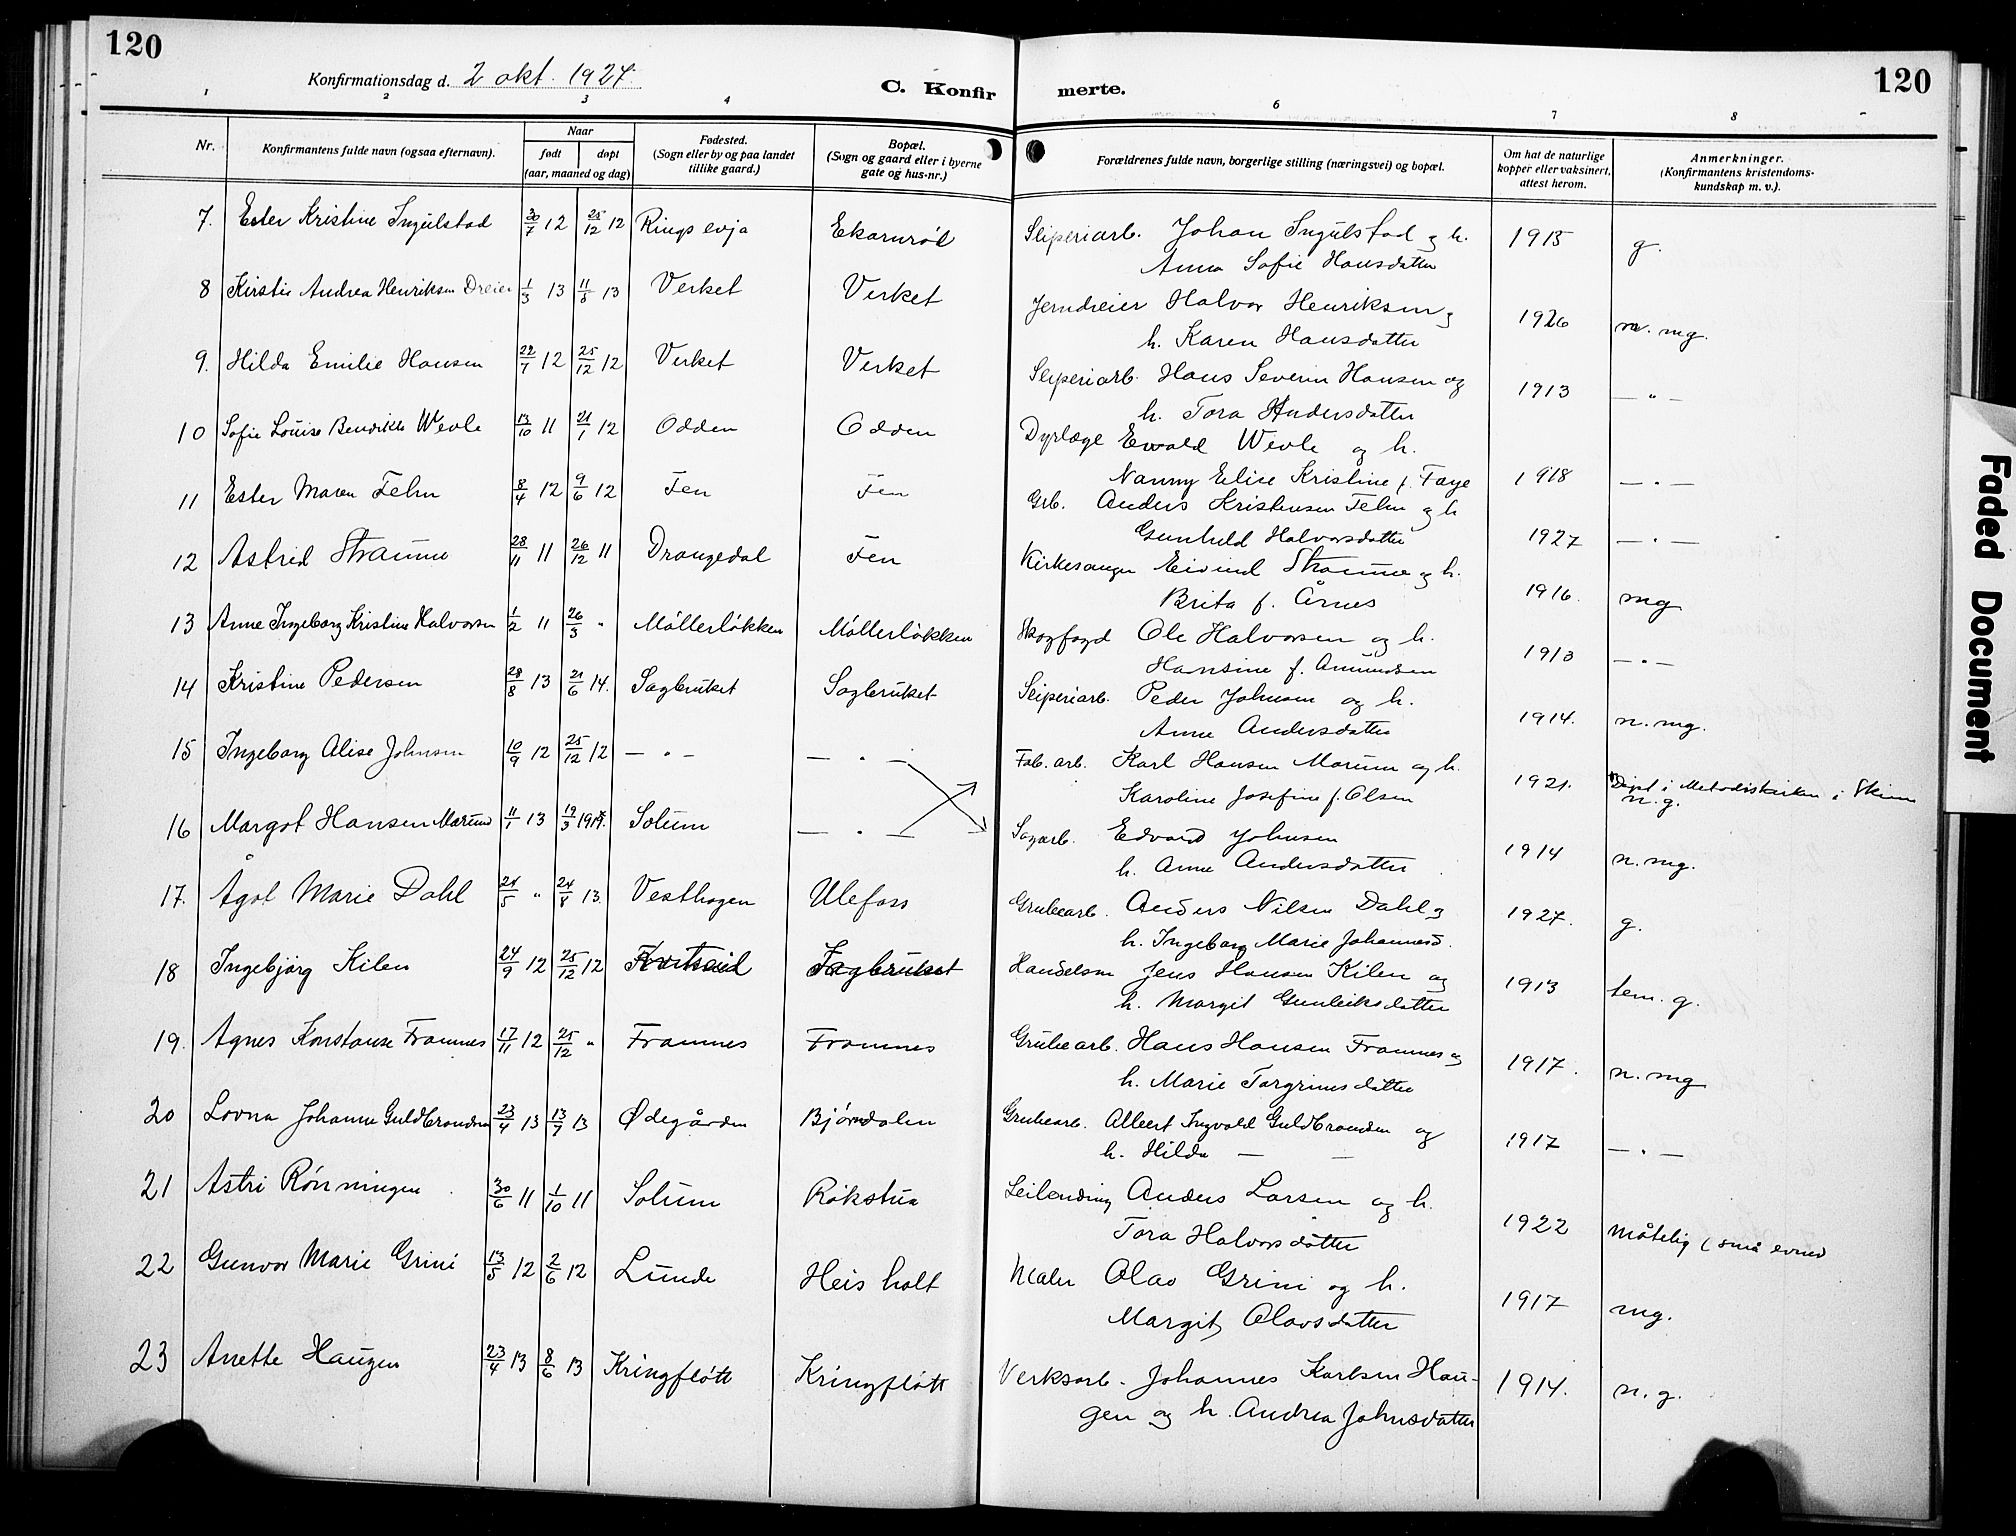 120
120
Konfirmationsdag d. 2 okt. 1927.
C. Konfirmerte.
1 2 3 4 6 7 8
Nr.
Konfirmantens fulde navn (ogsaa efternavn).
Naar
født døpt
(aar, maaned og dag)
Fødested.
(Sogn eller by og paa landet
tillike gaard.)
Bopæl.
(Sogn og gaard eller i byerne
gate og hus-nr.)
Forældrenes fulde navn, borgerlige stilling (næringsvei) og bopæl.
Om hat de naturlige
kopper eller vaksinert,
attest herom.
Anmerkninger.
(Konfirmantens kristendoms-
kundskap m. v.).
7. Ester Kristine Ingulstad 30/7 12 25/12 12 Ringsevja Ekornrød Sliperiarb. Johan Ingulstad og h. 1915 g.
Anna Sofie Hansdatter
8 Kirstie Andrea Henriksen Dreier 1/3 13 11/5 13 Verket Verket Jerndreier Halvor Henriksen og 1926 n. mg.
h. Karen Hansdatter
9. Hilda Emilie Hansen 22/7 12 25/12 12 Verket Verket Sliperiarb. Hans Severin Hansen og 1913 — " —
h. Tora Andersdatter
10 Sofie Louise Bendikte Wevle 13/10 11 21/1 12 Odden Odden Dyrlæge Ewald Wevle og h. 1918 — " —
Nanny Elise Kristine f. Faye
11 Ester Maren Fehn 8/4 12 9/6 12 Fen Fen Grb. Anders Kristensen Fehn og h 1927 — " —
Gunhild Halvorsdatter
12 Astrid Straume 28/11 11 26/12 11 Drangedal Fen Kirkesanger Eivind Straume og h. 1916. mg
Brita f. Årnes
13 Anne Ingeborg Kristine Halvorsen 1/2 11 26/3 " Møllerløkken Møllerløkken Skogfogd Ole Halvorsen og h. 1913 — " —
Hansine f. Amundsen
14 Kristine Pedersen 28/8 13 21/6 14. Sagbruket Sagbruket Sliperiarb. Peder Johnsen og h. 1914. n. mg.
Anne Andersdatter
15 Ingeborg Alise Johnsen 10/9 12 25/12 12 — " — — " — Fab. arb. Karl Hansen Marum og h. 1921. Døpt i Metodistkirken i Skien
Karoline Josefine f. Olsen n. g.
16 Margot Hansen Marum 11/1 13 19/3 1914. Solum — " — Sagarb. Edvard Johnsen 1914 n. mg.
h. Anne Andersdatter
17. Ågot Marie Dahl 24/5 " 24/8 13. Vesthagen Ulefoss Grubearb. Anders Nilsen Dahl og 1927. g.
h. Ingeborg Marie Johannesd.
18 Ingebjørg Kilen 24/9 12 25/12 12 Kvitseid Sagbruket Handelsm Jens Hansen Kilen og 1913 tem. g.
h. Margit Gunleiksdatter
19. Agnes Konstanse Framnes 17/11 12 25/12 " Framnes Framnes Grubearb. Hans Hansen Framnes og 1917. n. mg
h. Marie Torgrimsdatter
20 Lovna Johanne Guldbrandsen 23/4 13 13/7 13 Ødegården Bjørndalen Grubearb. Albert Ingvald Guldbrandsen og 1917 — " —
h. Hilda — —
21 Astri Rønningen 30/6 11 1/10 11 Solum Røkstua Leilending Anders Larsen og h. 1922 Måtelig (små evner
Tora Halvorsdatter
22 Gunvor Marie Grini 13/5 12 2/6 12 Lunde Heisholt Maler Olav Grini og h. 1917 mg.
Margit Olavsdatter
23 Anette Haugen 23/4 13 8/6 13 Kringfløtt Kringfløtt Verksarb. Johannes Karlsen Hau- 1914. n. g.
gen og h. Andrea Johnsdatter
Faded Document